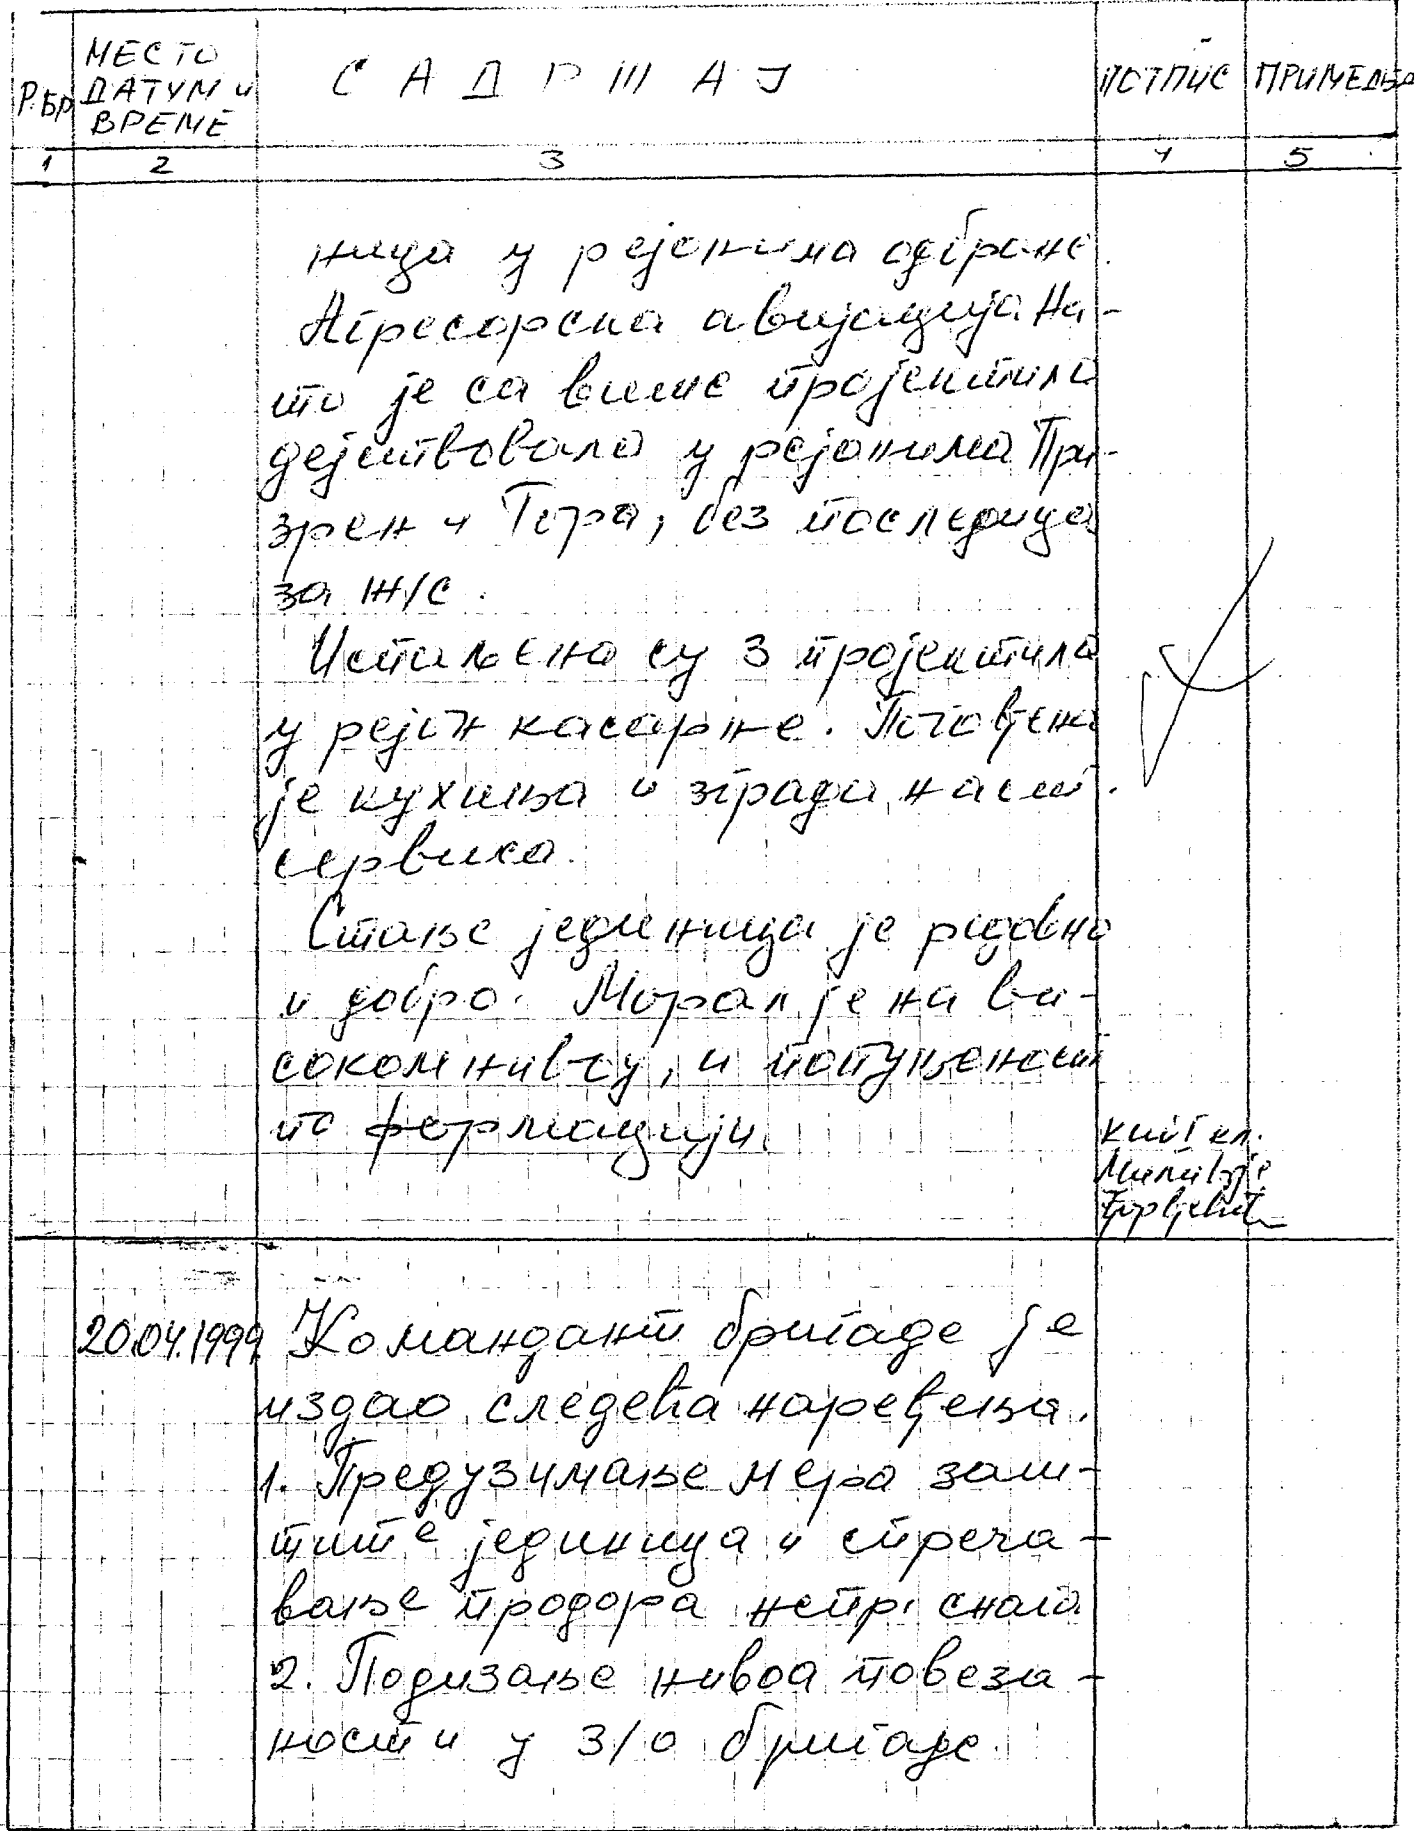 Р.БР МЕСТО ДАТУМ И ВРЕМЕ САДРЖАЈ ПОТПИС ПРИМЕДБА
1 2 3 4 5
ница у рејонима одбране.
Агресорска авијација На-
то је са више пројектила
дејствовала у рејонима При-
зрен и Гора, без последица
за Ж/С.
Испаљена су 3 пројектила
у рејон касарне. Погођена
је кухиња и зграда наст.
сервиса.
Стање јединица је редовно
и добро. Морал је на ви-
соком нивоу, и попуњеност
по формацији.
кап I кл.
Миливоје
Ђорђевић
20.04.1999. Командант бригаде је
издао следећа наређења.
1. Предузимање мера заш-
тите јединица и спреча-
вање продора непр. снага
2. Подизање нивоа повеза-
ности у З/О бригаде.